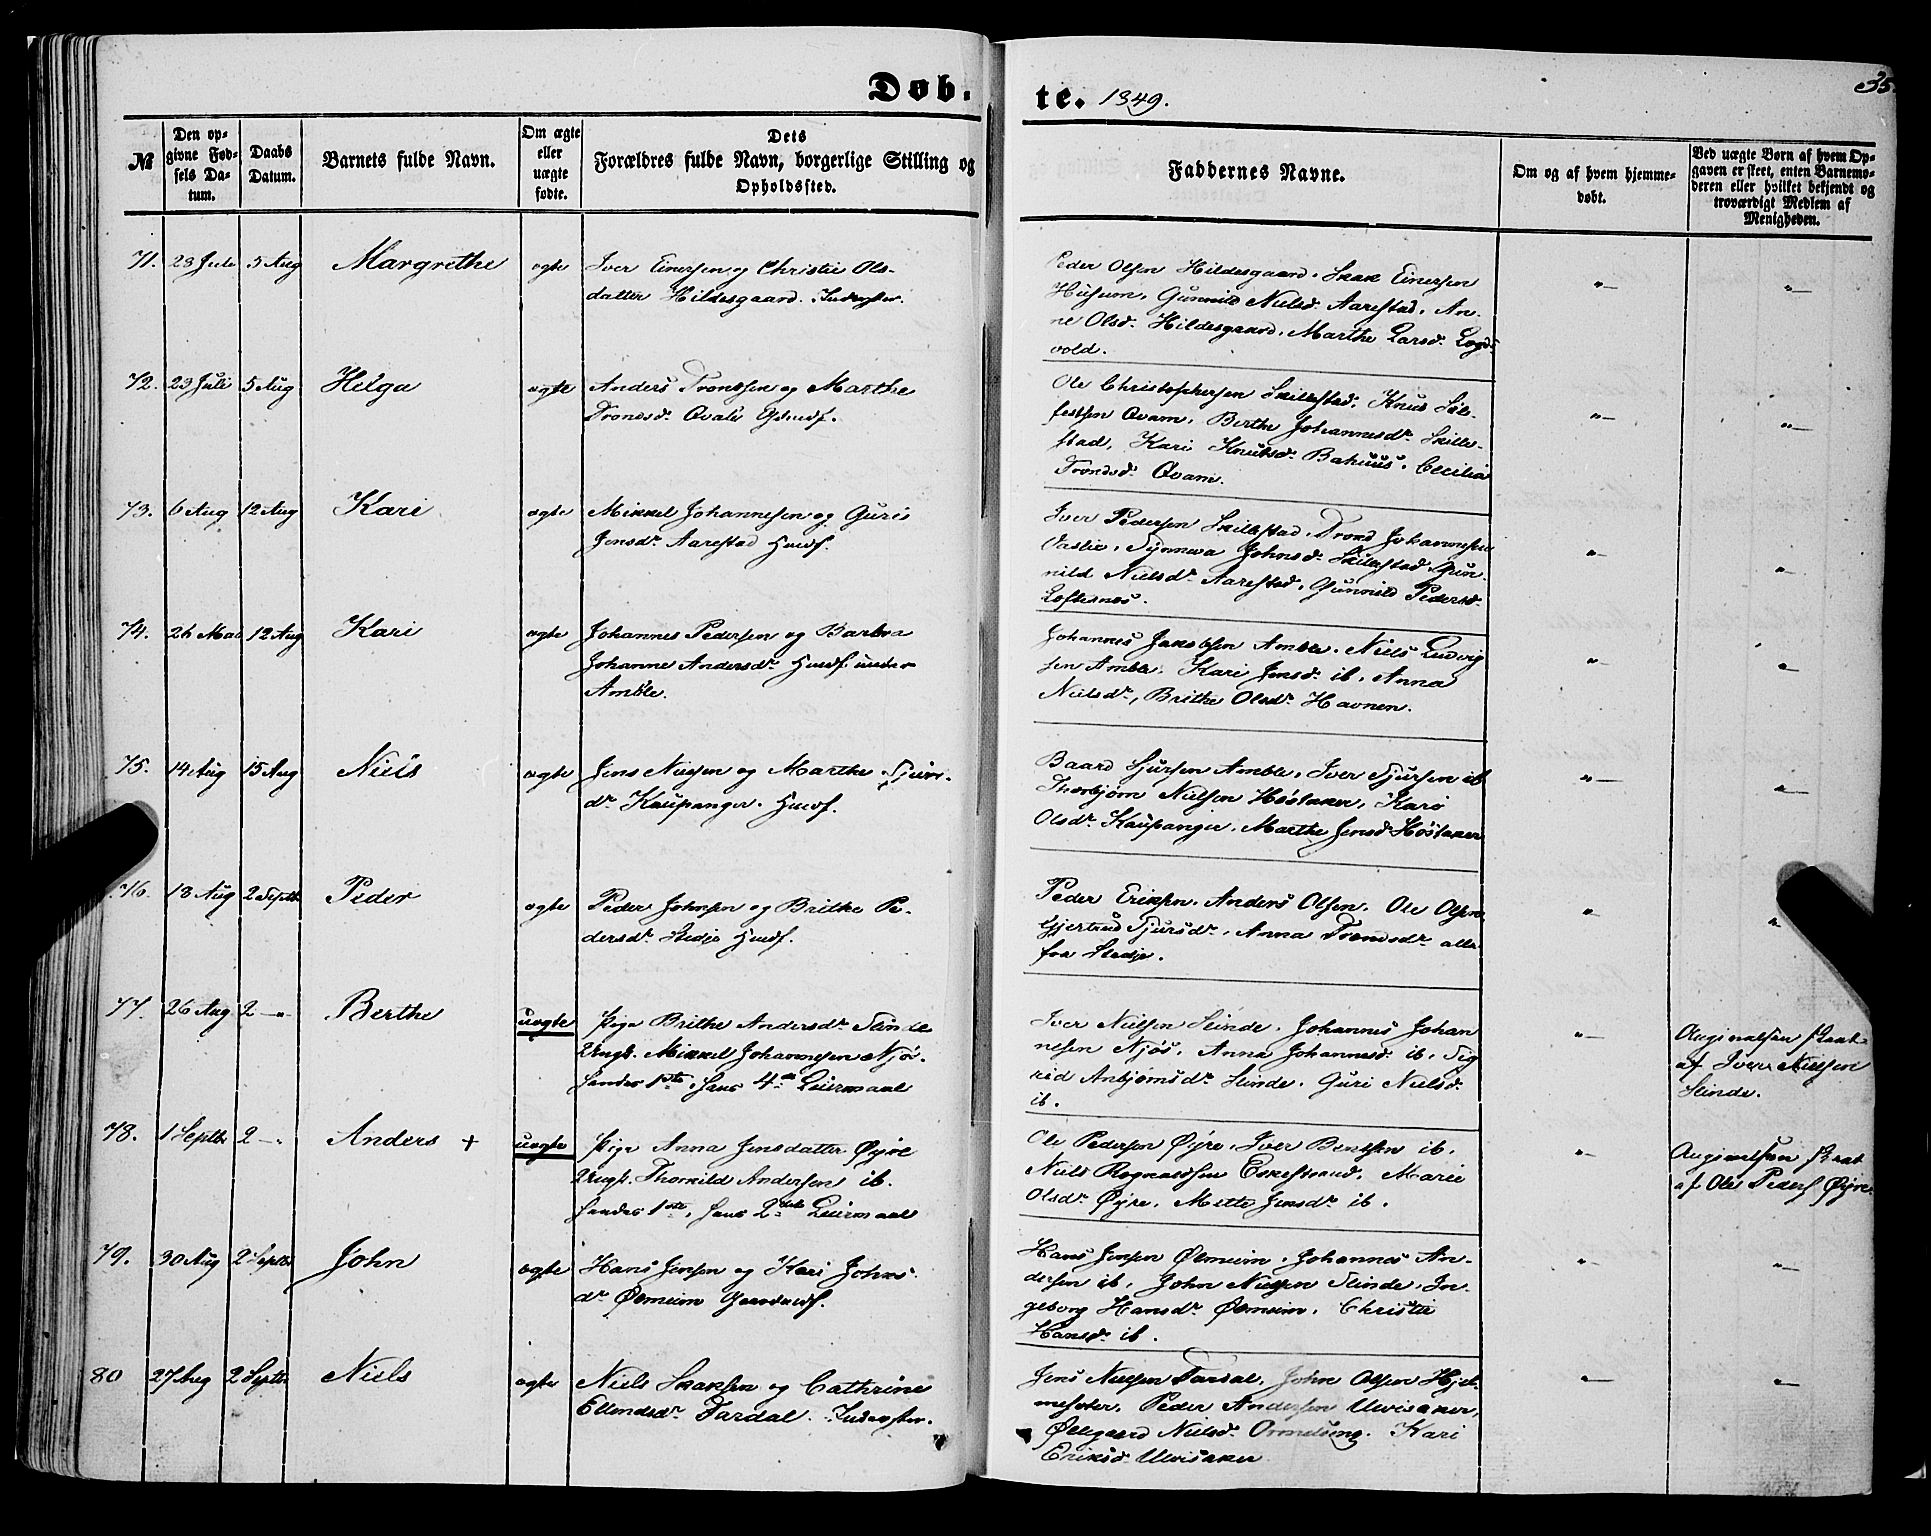 Døb.
te. 1849.
35.
№
Den opgivne Fødsels Datum.
Daabs Datum.
Barnets fulde Navn.
Om ægte eller uægte fødte.
Dets Forældres fulde Navn, borgerlige Stilling og Opholdssted.
Faddernes Navne.
Om og af hvem hjemmedøbt.
Ved uægte Børn af hvem Opgaven er skeet, enten Barnemoderen eller hvilket bekjendt og troværdigt Medlem af Menigheden.
71. 23 Juli 5 Aug Margrethe ægte Iver Einersen og Christie Ols-
datter Hildesgaard. Inderster.
Peder Olsen Hildesgaard. Skak Einersen
Husum, Gunnild Nielsd. Aarestad, An-
ne Olsd. Hildesgaard, Marthe Larsd. Logds
vold.
72. 23 Juli 5 Aug Helga ægte Anders Trondsen og Marthe
Trondsd. Qvale
Ole Christophersen Skillestad, Knud Sile-
festsen Qvam, Berthe Johannesd. Skille-
stad, Kari Knutsd. Bahuus, Cecilia
Trondsd. Qvam.
73. 6 Aug 12 Aug Kari ægte Mikkel Johannesen og Guris
Jensd. Aarestad Husf.
Iver Pedersen Skillestad, Trond Johannesen
Vaslie, Synneva Johnsd. Skillestad, Gun-
nild Nielsd. Aarestad, Gunnild Pedersd.
Loftesnes.
74. 26 Mai 12 Aug Kari ægte Johannes Pedersen og Barbra
Johanne Andersd. Husf. under
Amble.
Johannes Jakobsen Amble. Niels Ludvig
sen Amble. Kari Jensd. ib. Anna
Nielsd., Brithe Olsd. Havnen.
75. 14 Aug 15 Aug Niels ægte Jens Nielsen og Marthe Sjurs-
d. Kaupanger. Husf.
Baard Sjursen Amble. Iver Sjursen ib
Thorbjørn Nielsen Høstaker, Kari
Olsd. Kaupanger. Marthe Jensd. Høstaker
76. 18 Aug 2 Septb. Peder ægte Peder Johnsen og Brithe Pe-
dersd. Stedje Husf.
Peder Eriksen. Anders Olsen. Ole Olsen
Gjertrud Sjursd., Anna Trondsd. alle
fra Stedje.
77. 26 Aug 2 — Berthe uægte Pige Brithe Andersd. Slinde
Ungk. Mikkel Johannesen Njøs.
hendes 1ste, hans 4de Leiermaal
Iver Nielsen Slinde. Johannes Johan
nesen Njøs. Anna Johannesd. ib. Sig
rid Anbjørnsd. Slinde. Guri Nielsd.
ib.
Angivelsen skeet
af Iver Nielsen
Slinde.
78. 1 Septb. 2 — Anders + uægte Pige Anna Jensdatter Øyre
Ungk. Thorkild Andersen ib.
hendes 1ste, hans 2det Leiermaal
Ole Pedersen Øyre. Iver Bentsen ib.
Niels Rognaldsen Eskestrand. Marie
Olsd. Øyre. Mette Jensd. ib.
Angivelsen skeet
af Ole Peders. Øyre
79. 30 Aug 2 Septb. John ægte Hans Jensen og Kari Johns-
d. Ølmeim Gaardmf.
Hans Jensen Ølmeim. Johannes An-
dersen ib. John Nielsen Slinde. In-
geborg Hansd. Ølmeim. Christie
Hansd. ib.
80 27 Aug 2 Septb. Niels ægte Niels Skaksen og Cathrine
Ellendsd. Fardal. Inderster.
Jens Nielsen Fardal. John Olsen Hjel-
mesæter. Peder Andersen Ulvisaker,
Øllegaard Nielsd. Kari
Eriksd. Ulvisaker